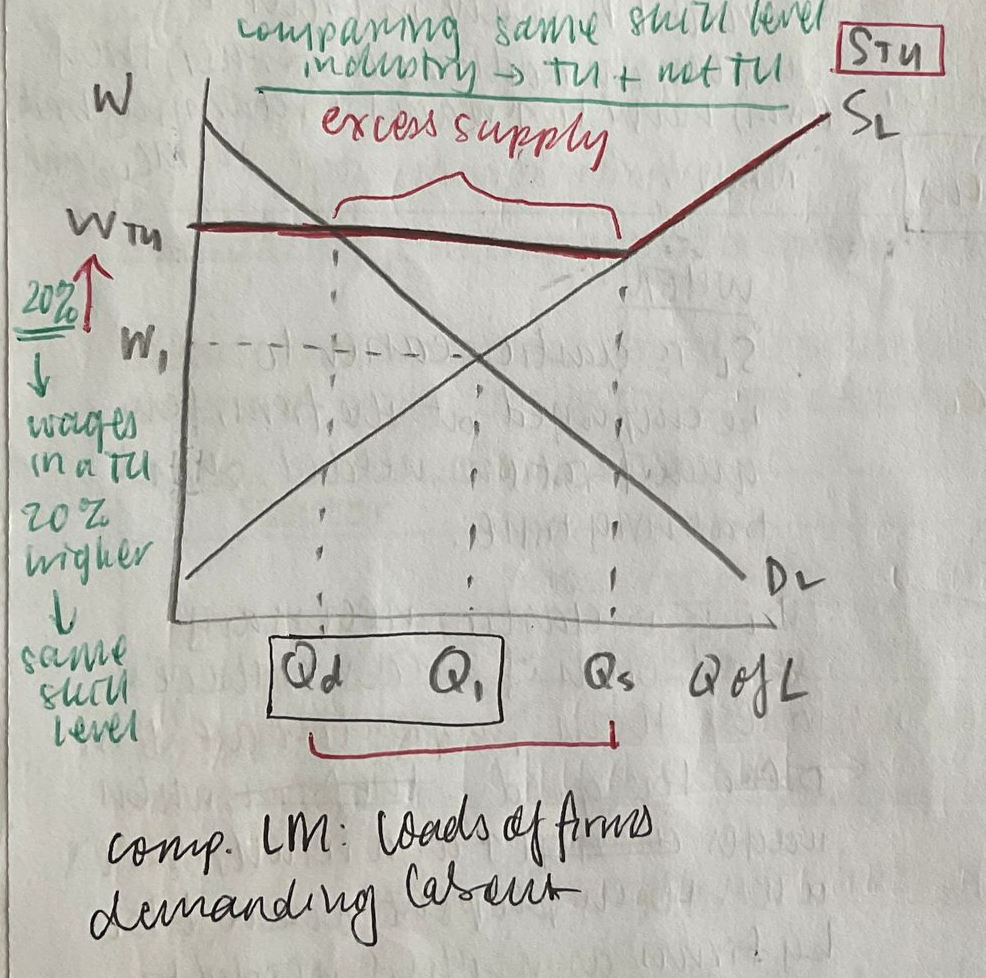 comparing same skill level
industry → TU + not TU
STU
W
excess supply
SL
WTU
20%
W1
wages
in a TU
20%
higher
same
skill
level
DL
Qd Q1 Qs Q of L
comp. LM: loads of firms
demanding labour